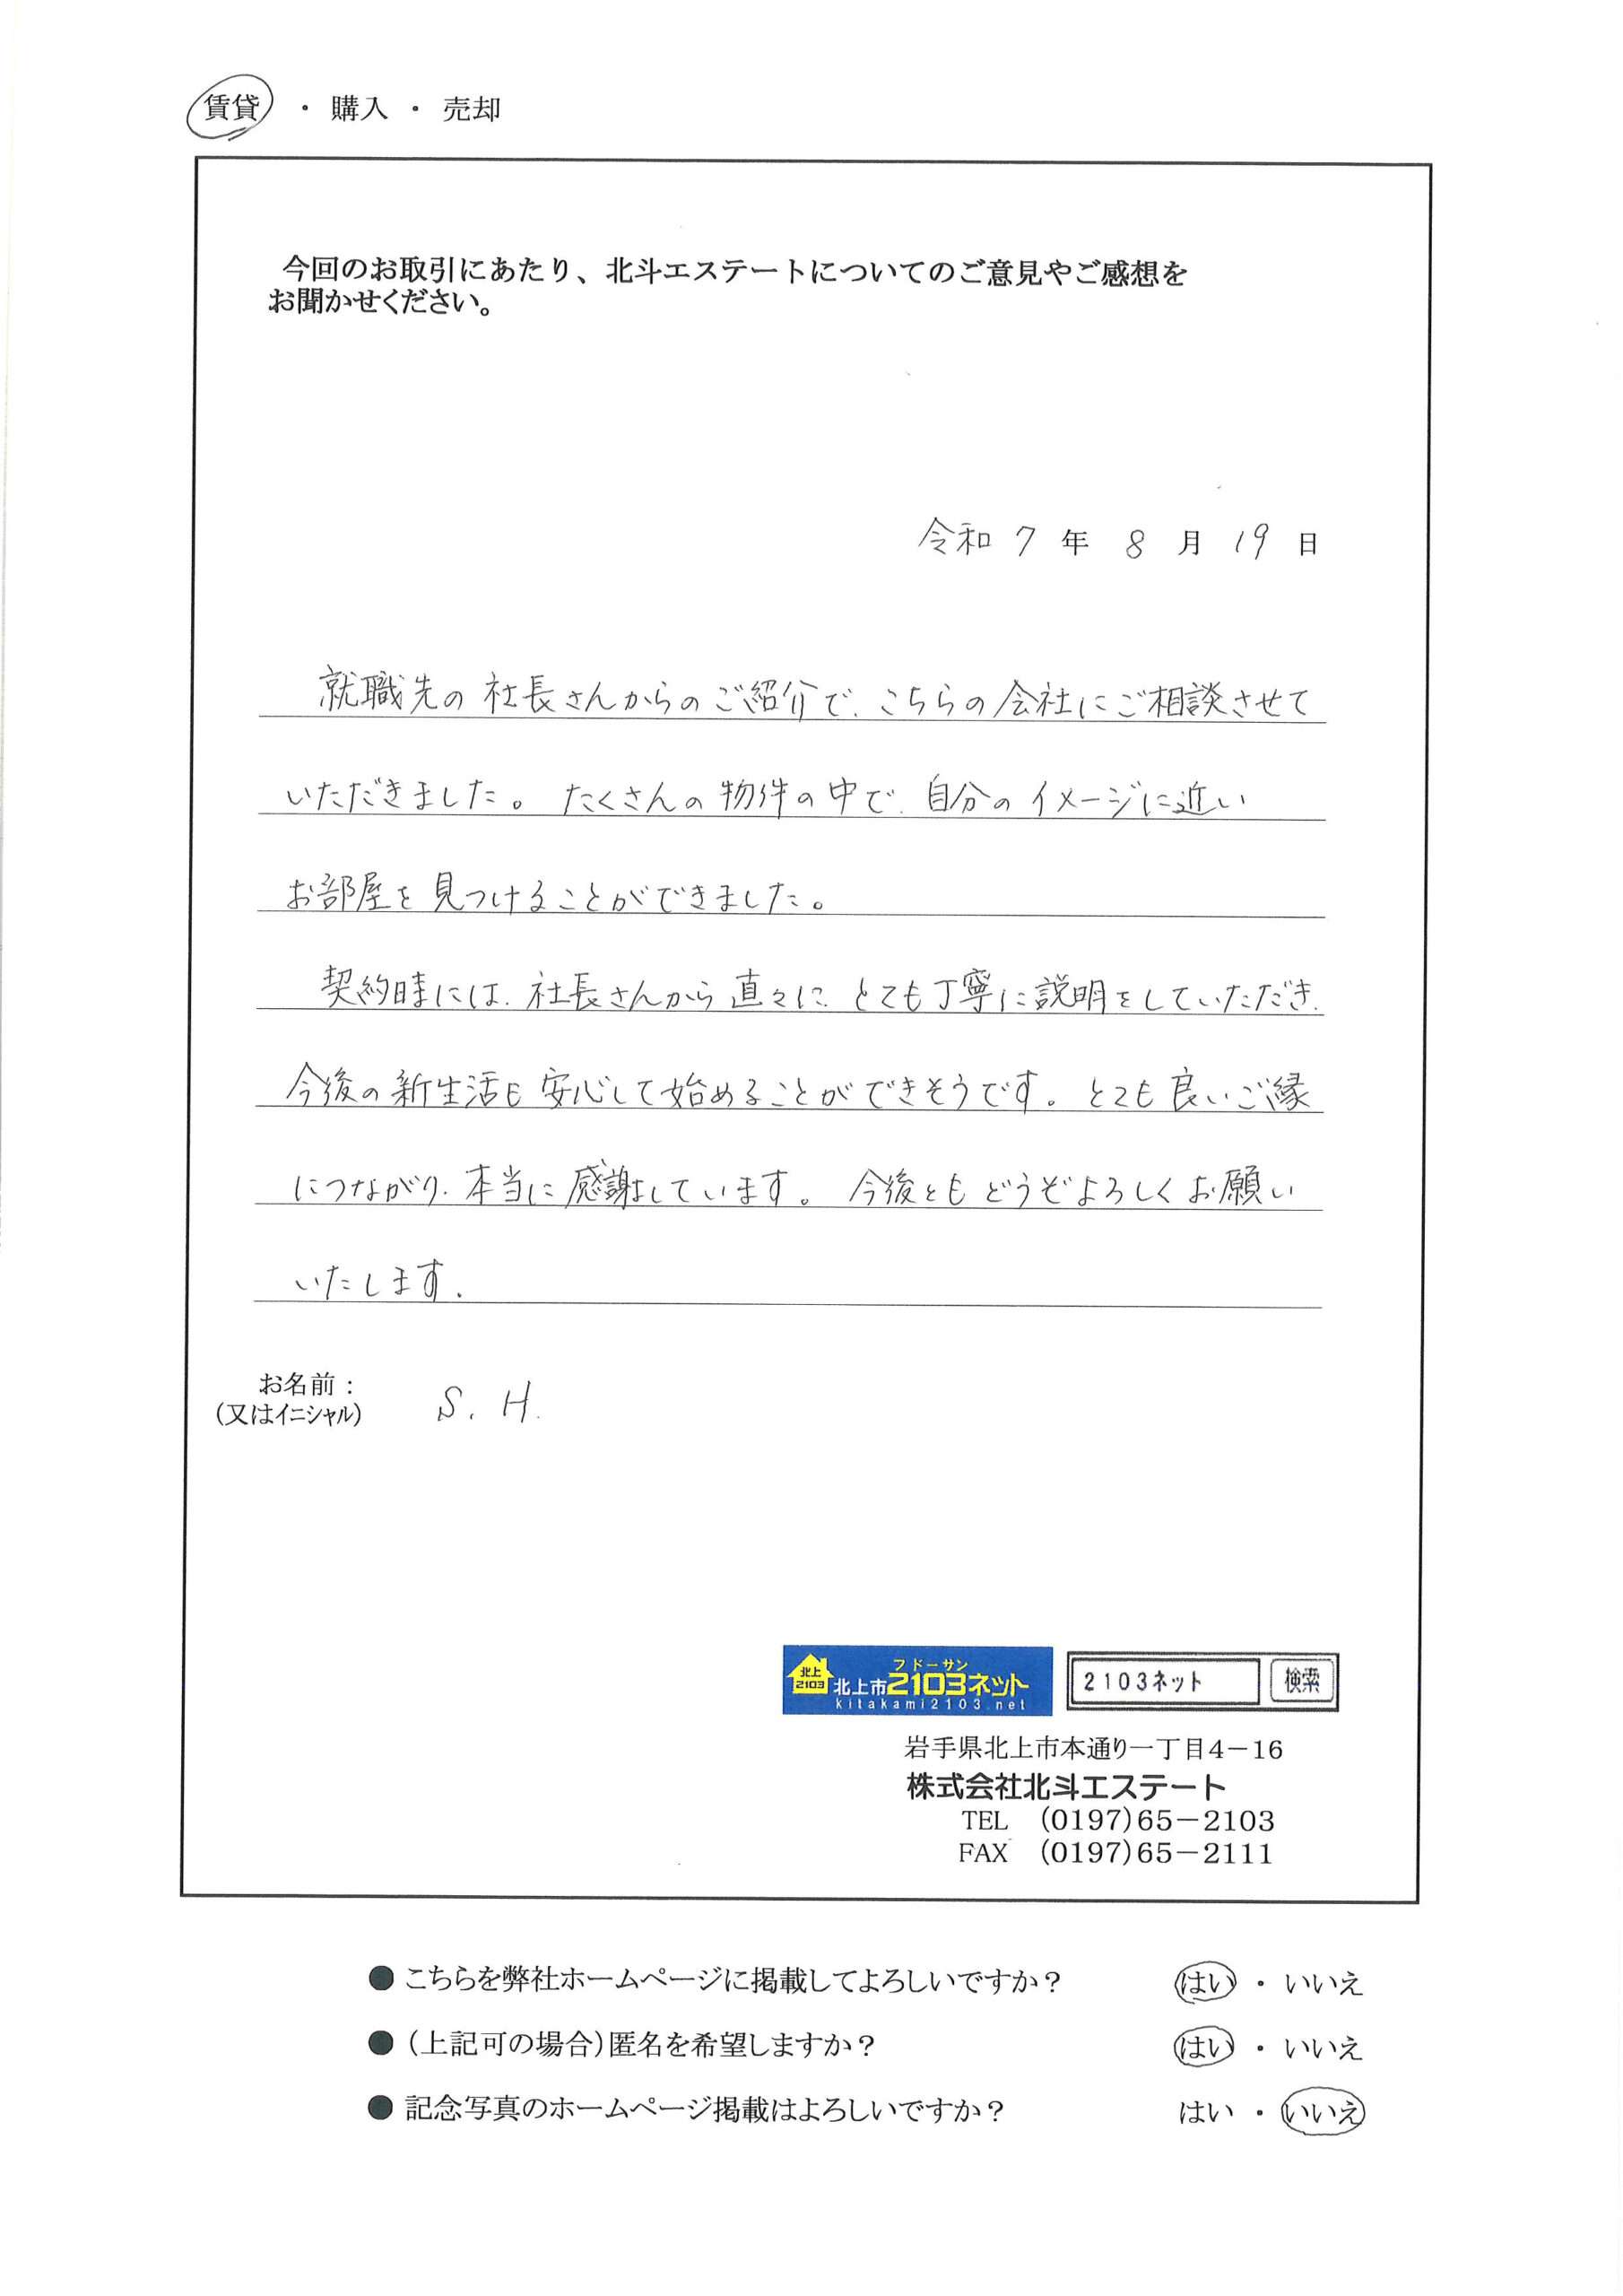 賃貸 ・ 購入 ・ 売却
今回のお取引にあたり、北斗エステートについてのご意見やご感想を
お聞かせください。
令和 7 年 8 月 19 日
就職先の社長さんからのご紹介で、こちらの会社にご相談させて
いただきました。たくさんの物件の中で、自分のイメージに近い
お部屋を見つけることができました。
契約時には、社長さんから直々に、とても丁寧に説明をしていただき、
今後の新生活も安心して始めることができそうです。とても良いご縁
につながり、本当に感謝しています。今後ともどうぞよろしくお願い
いたします。
お名前：
（又はイニシャル） S. H.
北上
2103
フドーサン
北上市2103ネット
kitakami2103.net
2103ネット 検索
岩手県北上市本通り一丁目4－16
株式会社北斗エステート
TEL (0197)65－2103
FAX (0197)65－2111
● こちらを弊社ホームページに掲載してよろしいですか？ はい ・ いいえ
● （上記可の場合）匿名を希望しますか？ はい ・ いいえ
● 記念写真のホームページ掲載はよろしいですか？ はい ・ いいえ